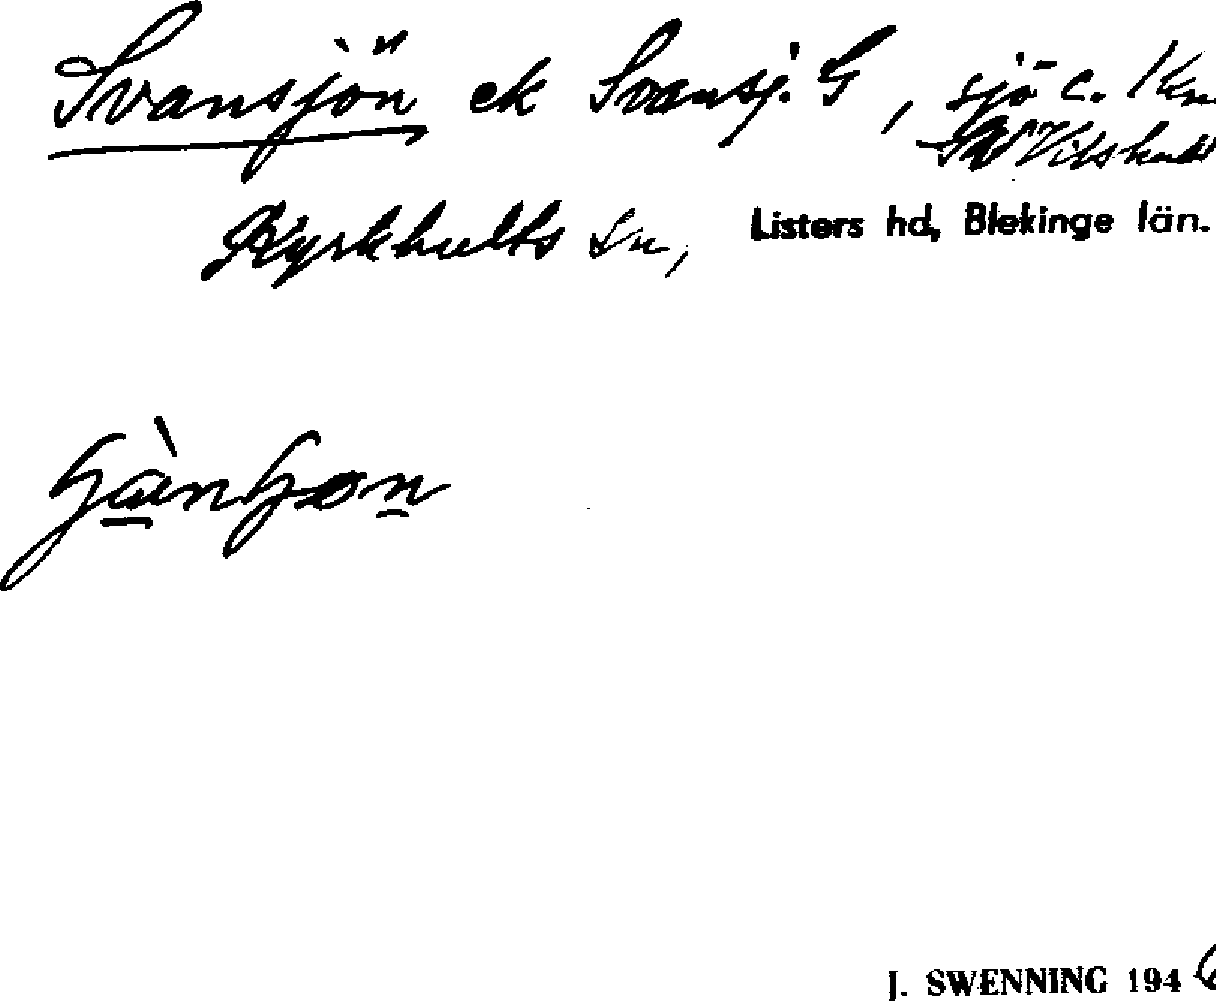 Svansjön ek Svansj. G, sjö c. 1 km
SV Vilshult
Kyrkhults sn, Listers hd, Blekinge län.
J. SWENNING 1946